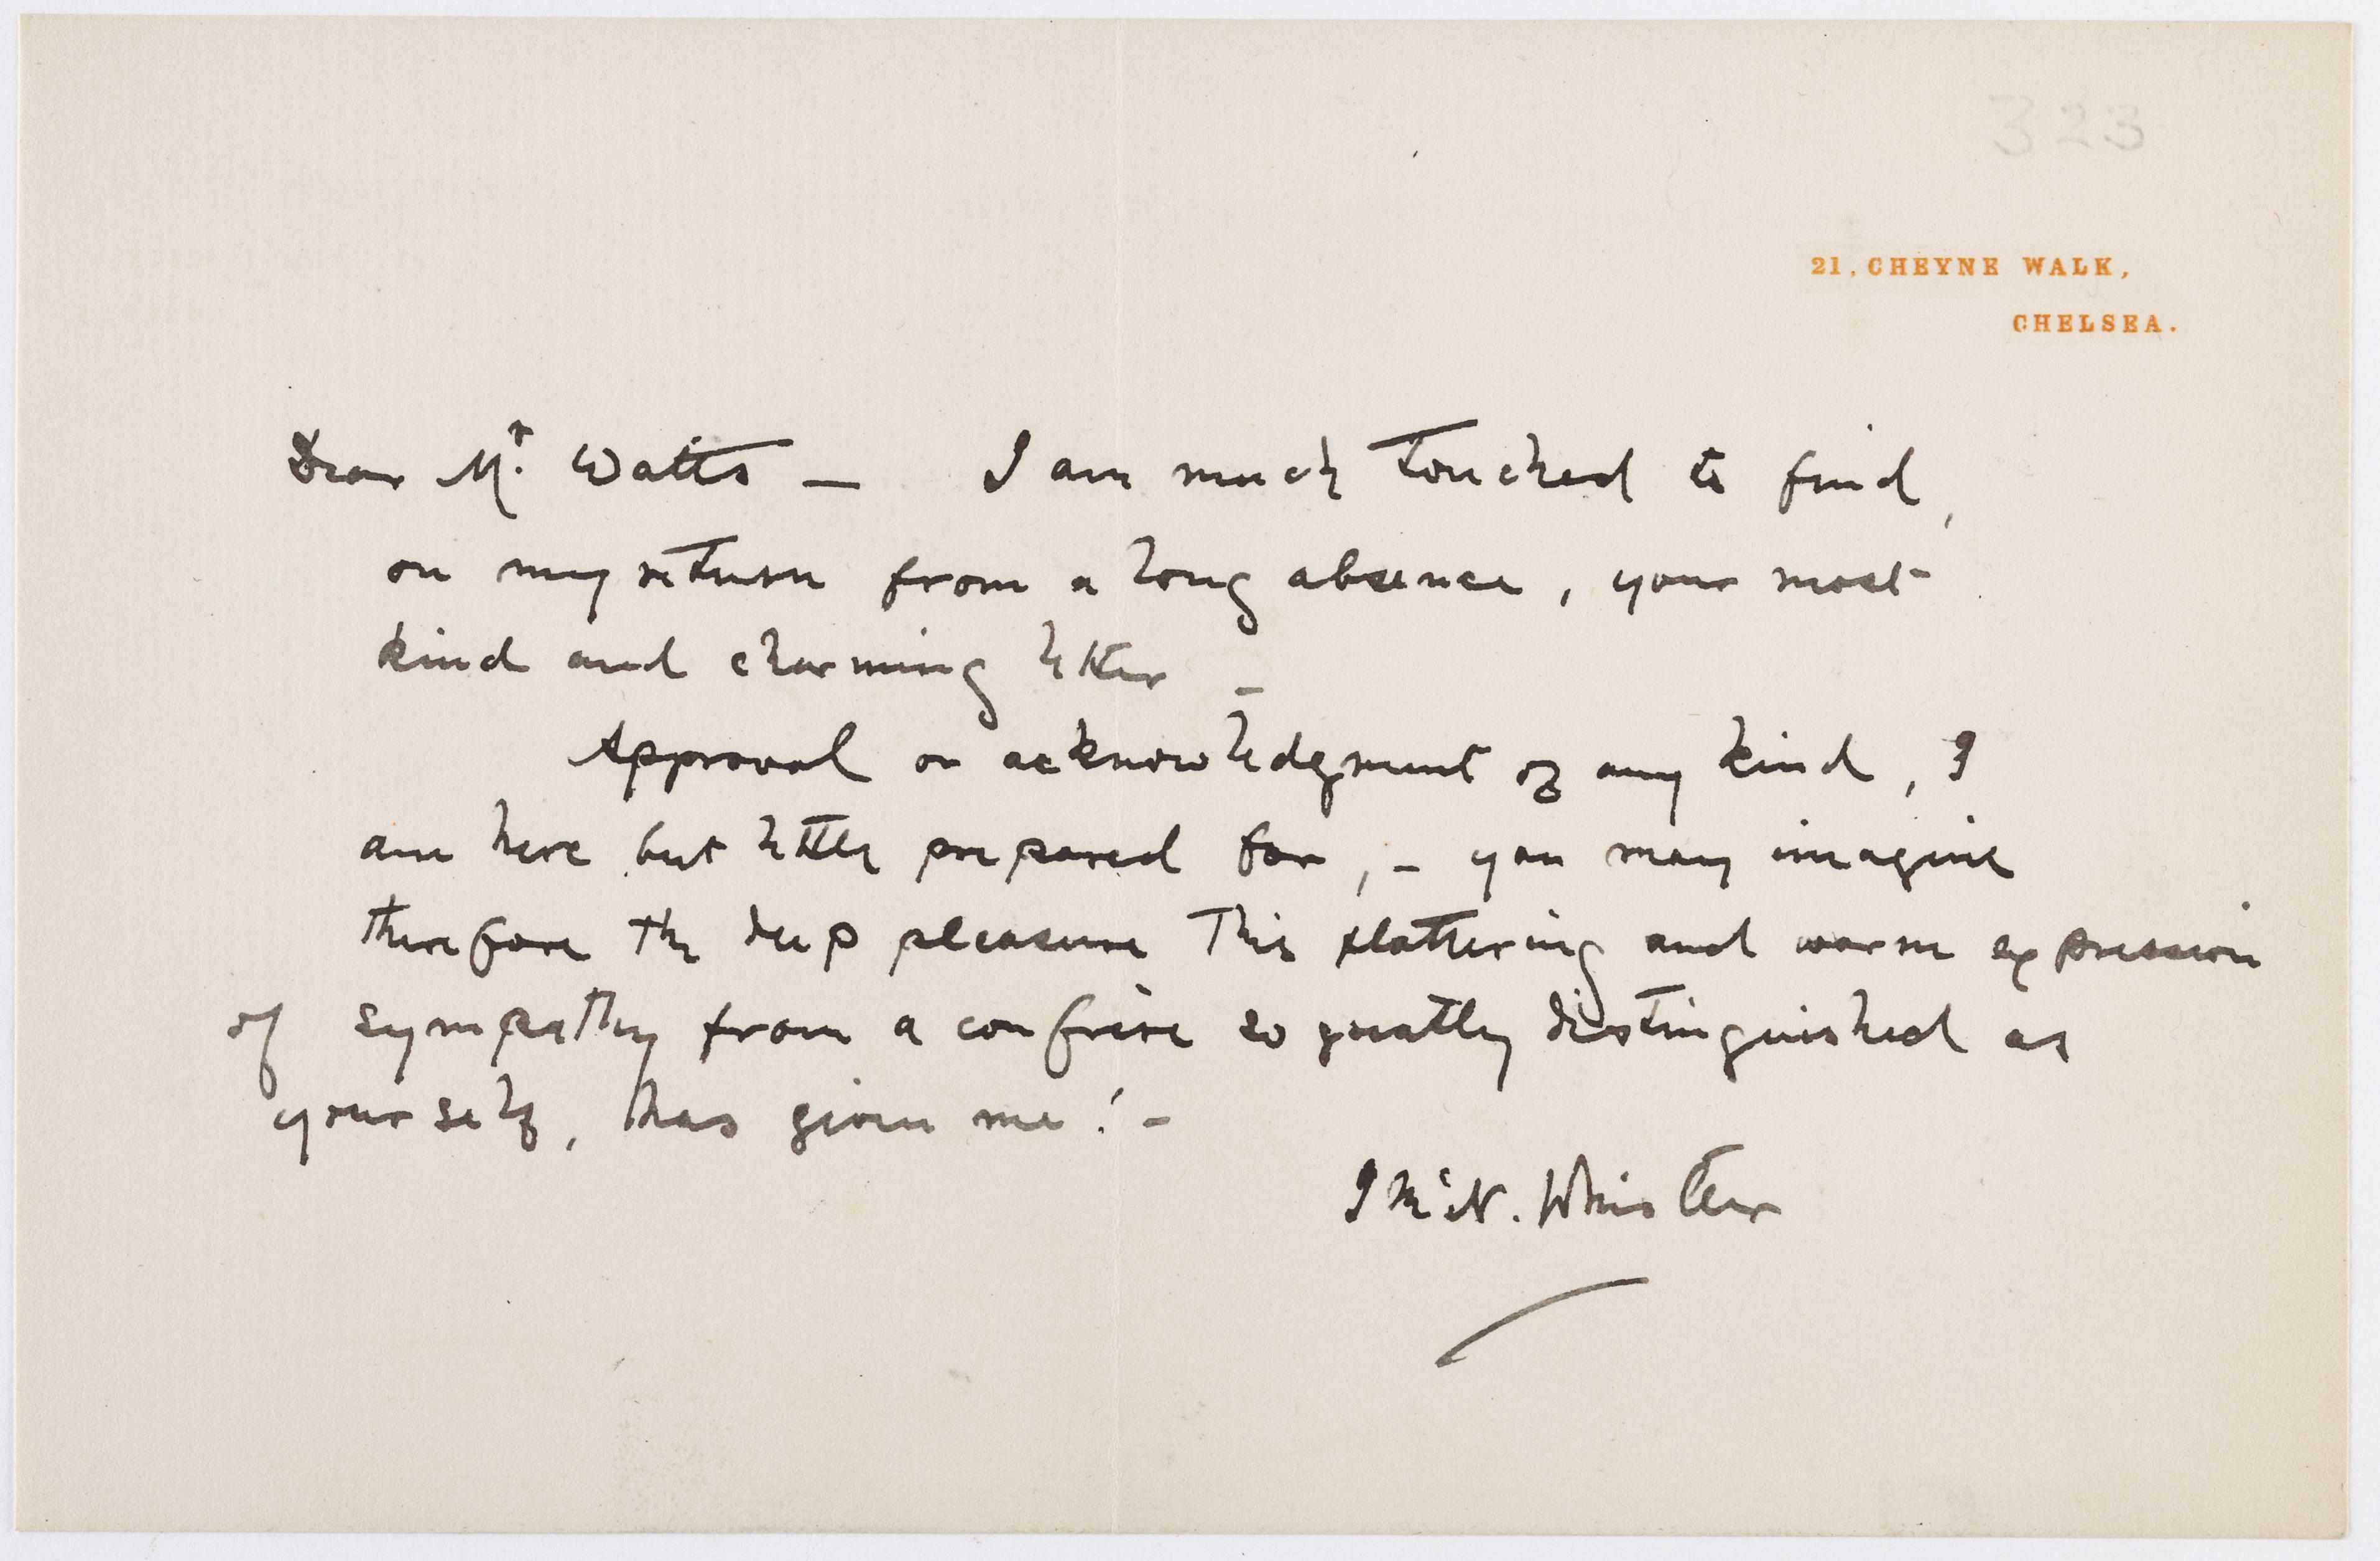 323
21, CHEYNE WALK,
CHELSEA.
Dear Mr. Watts — I am much touched to find,
on my return from a long absence, your most
kind and charming letter —
Approval or acknowledgment of any kind, I
am here but little prepared for, – you may imagine
therefore the deep pleasure this flattering and warm expression
of sympathy from a confrère so greatly distinguished as
yourself, has given me! –
J McN. Whistler